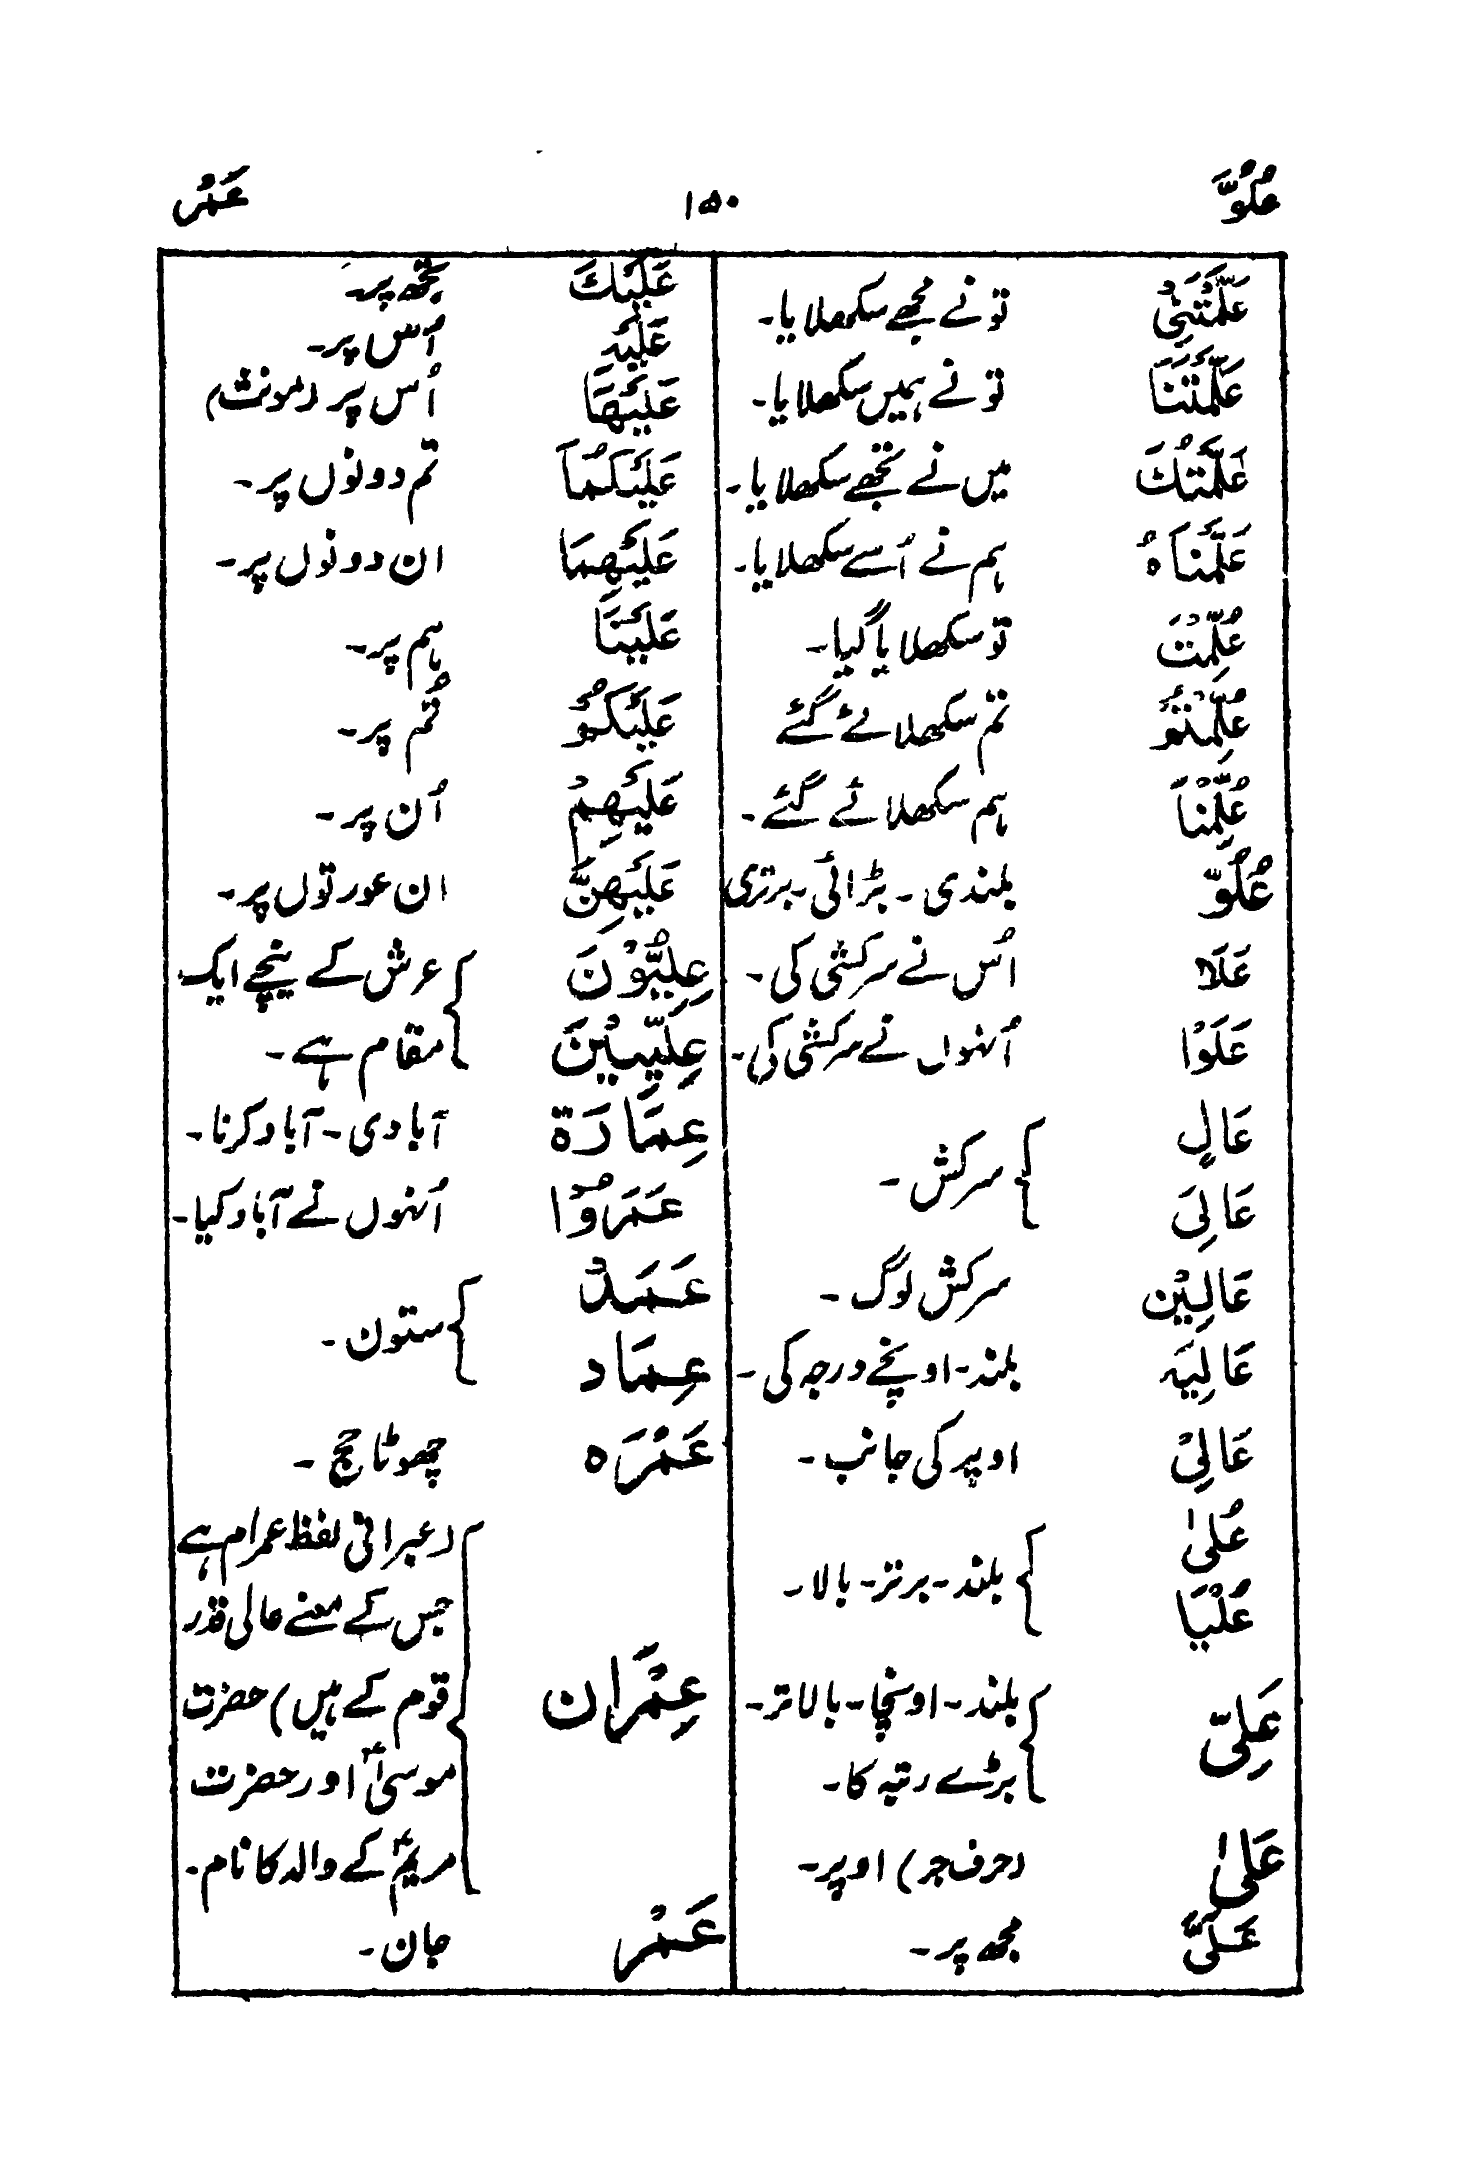 عُلُوَّ ۱۵۰ عَمْر
عَلَّمْتَنِیْ تو نے مجھے سکھلایا۔
عَلَّمْتَنَا تو نے ہمیں سکھلایا۔
عَلَّمْتُكَ میں نے تجھے سکھلایا۔
عَلَّمْنَاهُ ہم نے اُسے سکھلایا۔
عُلِّمْتَ تو سکھلایا گیا۔
عُلِّمْتُمْ تم سکھلائے گئے
عُلِّمْنَا ہم سکھلائے گئے۔
عُلُوّ بلندی ۔ بڑائی ۔ برتری
عَلَا اُس نے سرکشی کی۔
عَلَوْا اُنہوں نے سرکشی کی۔
عَالٍ
سرکش ۔
عَالِیَ
عَالِیْن سرکش لوگ ۔
عَالِیَہ بلند ۔ اونچے درجہ کی ۔
عَالِیْ اوپر کی جانب ۔
عُلیٰ
بلند ۔ برتر ۔ بالا ۔
عُلْیَا
عَلِیّ بلند ۔ اونچا ۔ بالاتر ۔
بڑے رتبہ کا ۔
عَلیٰ (حرف جر) اوپر۔
عَلَیَّ مجھ پر ۔
عَلَیْكَ تجھ پر۔
عَلَیْہِ اُس پر۔
عَلَیْهَا اُس پر (مونث)
عَلَیْكُمَا تم دونوں پر۔
عَلَیْهِمَا ان دونوں پر۔
عَلَیْنَا ہم پر۔
عَلَیْكُمْ تُم پر۔
عَلَیْهِمْ اُن پر۔
عَلَیْهِنَّ ان عورتوں پر۔
عِلِّیُّوْنَ عرش کے نیچے ایک
عِلِّیِّیْنَ مقام ہے ۔
عِمَارَة آبادی ۔ آباد کرنا ۔
عَمَرُوْا اُنہوں نے آباد کیا۔
عَمَدْ
ستون ۔
عِمَاد
عُمْرَہ چھوٹا حج ۔
(عبرانی لفظ عمرام ہے
جس کے معنے عالی قدر
عِمْرَان قوم کے ہیں) حضرت
موسیٰؑ اور حضرت
مریمؑ کے والد کا نام ۔
عَمْر جان ۔